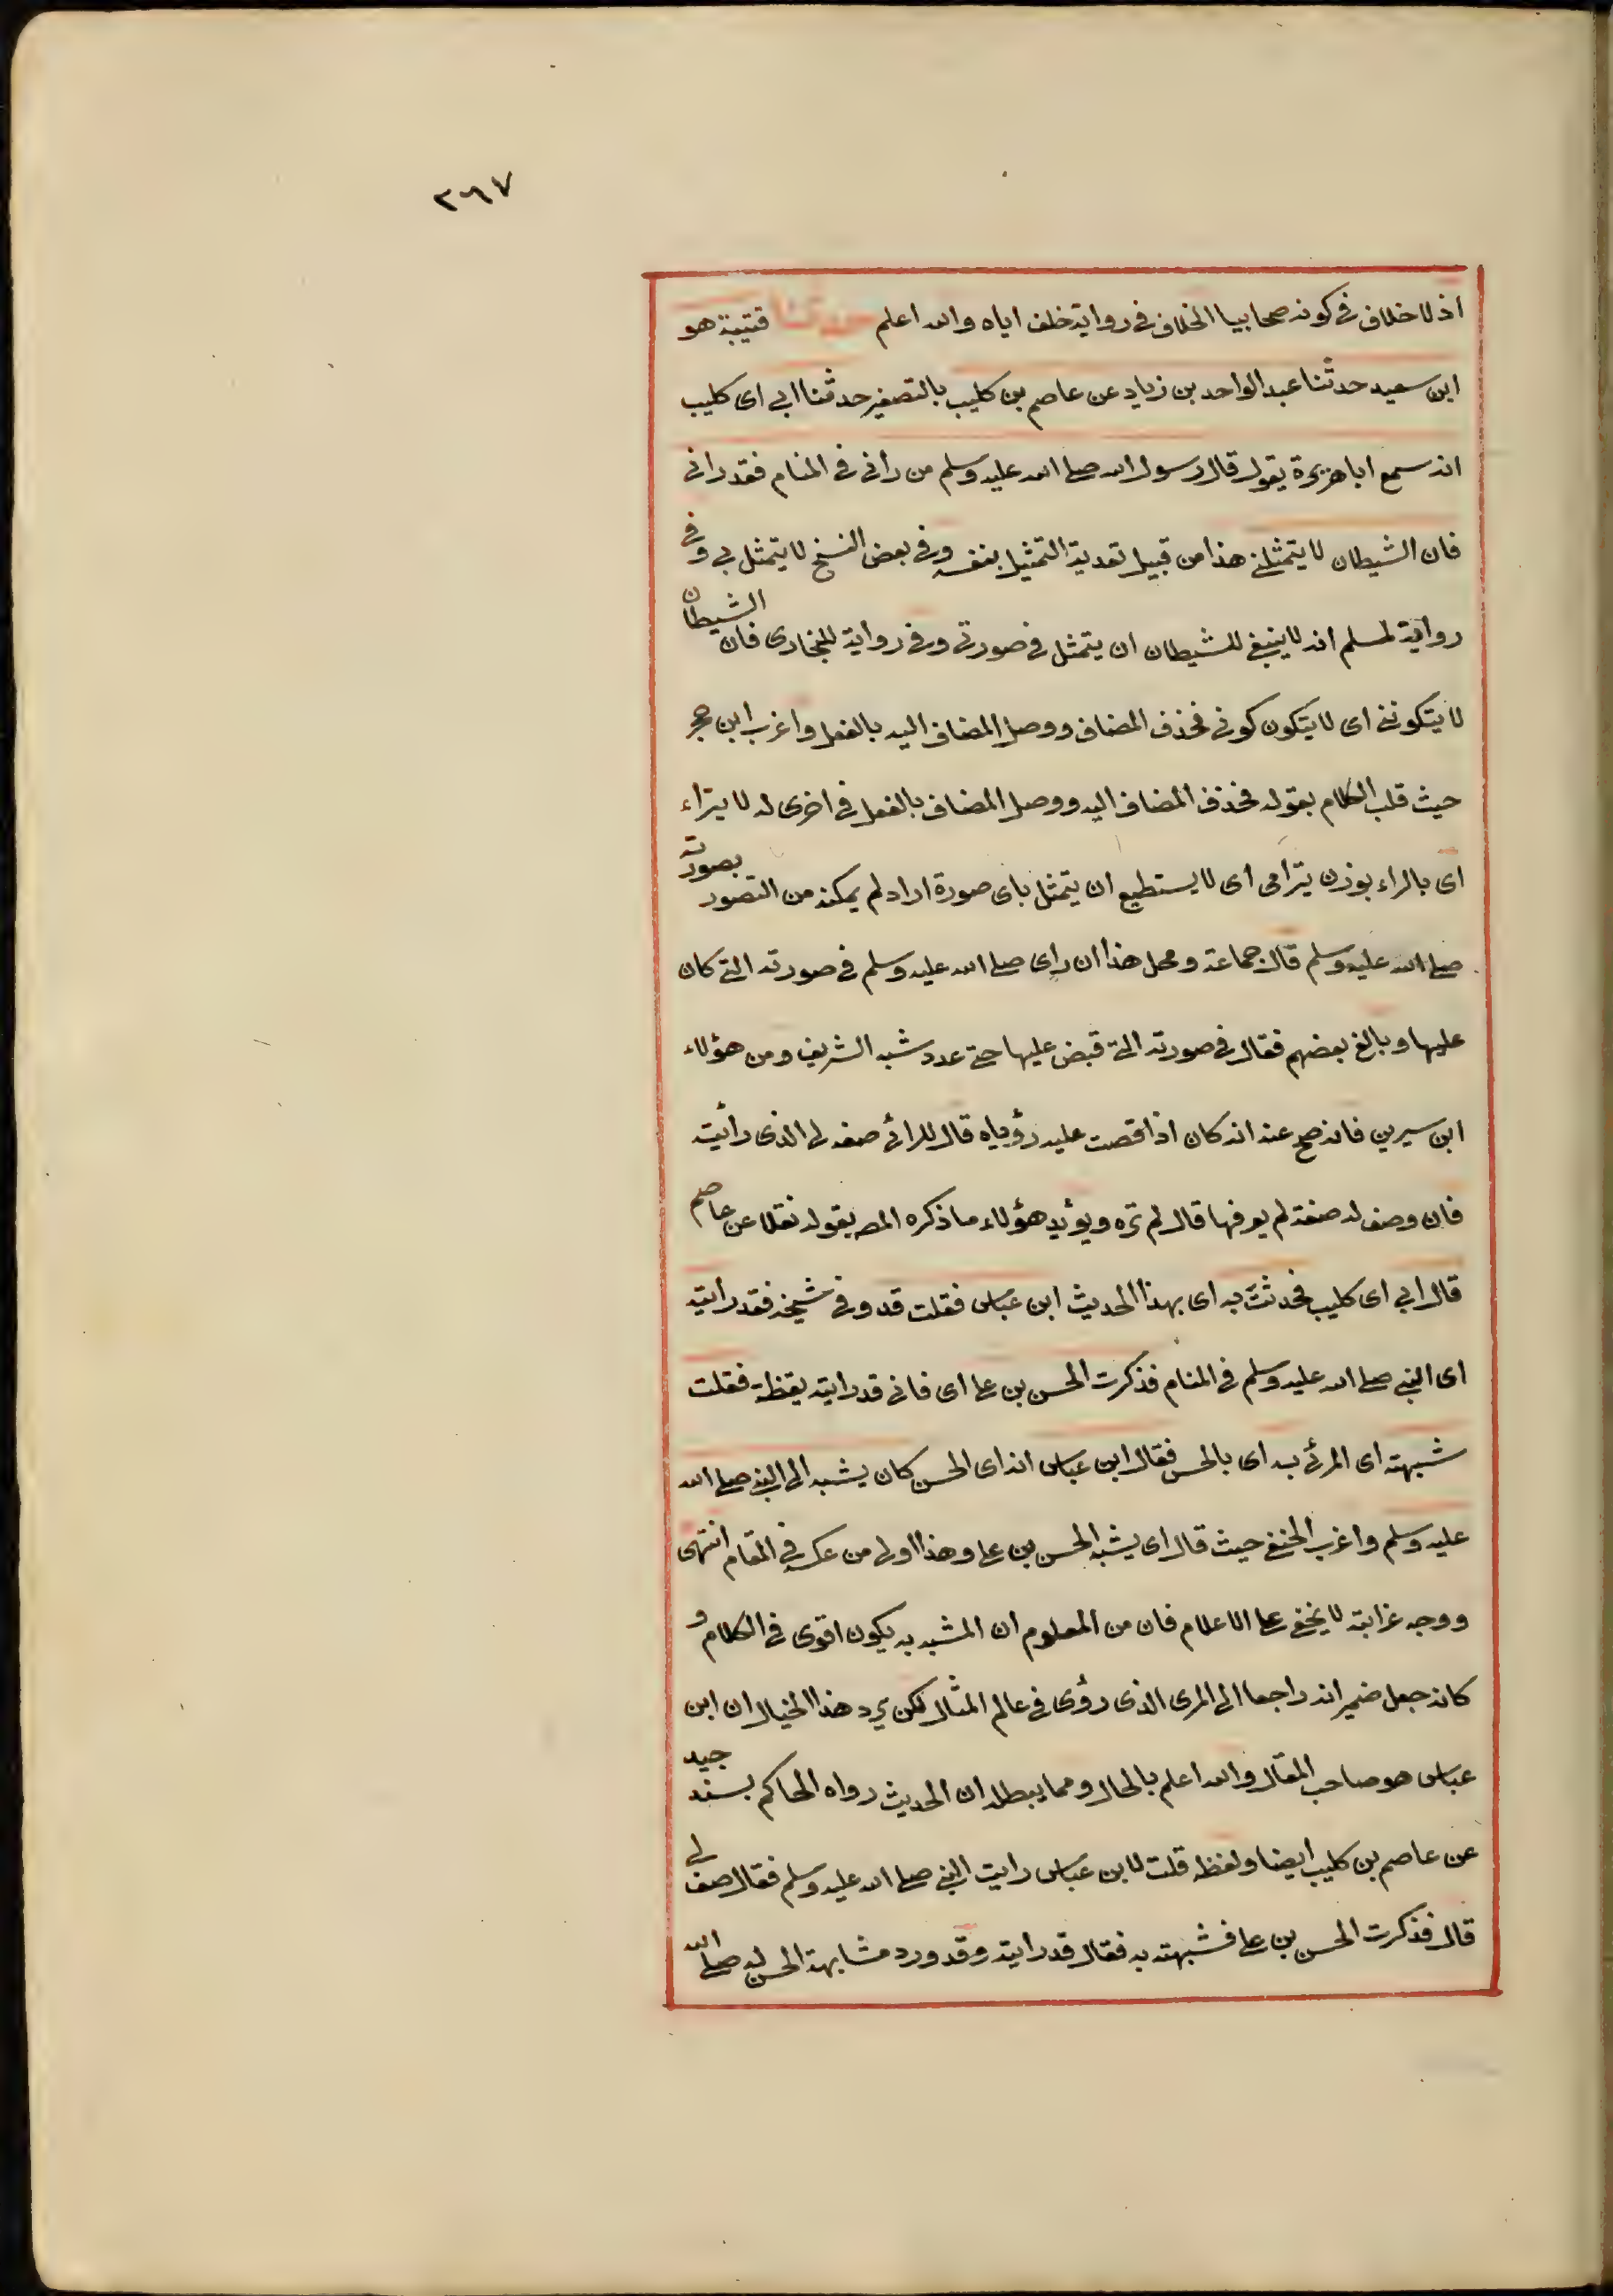 ٣٦٧
اذ لا خلاف فى كونه صحابيا الخلاف فى رواية خلف اياه والله اعلم حدثنا قتيبة هو
ابن سعيد حدثنا عبد الواحد بن زياد عن عاصم بن كليب بالتصغير حدثنا ابى اى كليب
انه سمع ابا هريرة يقول قال رسول الله صلى الله عليه وسلم من رانى فى المنام فقد رانى
فان الشيطان لا يتمثلنى هذا من قبيل تعدية التمثيل بنفسه وفى بعض النسخ لا يتمثل بى وفى
رواية لمسلم انه لا ينبغى للشيطان ان يتمثل فى صورتى وفى رواية للبخارى فان الشيطان
لا يتكوننى اى لا يتكون كونى فحذف المضاف ووصل المضاف اليه بالفعل واغرب ابن حجر
حيث قلب الكلام بقوله فحذف المضاف اليه ووصل المضاف بالفعل فى اخرى له لا يتراء
اى بالراء بوزن يترامى اى لا يستطيع ان يتمثل باى صورة اراد لم يمكنه من التصور بصورته
صلى الله عليه وسلم قال جماعة ومحل هذا ان راى صلى الله عليه وسلم فى صورته التى كان
عليها وبالغ بعضهم فقال فى صورته التى قبض عليها حتى عدد شيبه الشريف ومن هؤلاء
ابن سيرين فانه صح عنه انه كان اذا قصت عليه رؤياه قال للرائى صف لى الذى رأيت
فان وصف له صفة لم يعرفها قال لم تره ويؤيد هؤلاء ما ذكره المصـ بقوله نقلا عن عاصم
قال ابى اى كليب فحدثت به اى بهذا الحديث ابن عباس فقلت قد وفى نسخة فقد رايته
اى النبى صلى الله عليه وسلم فى المنام فذكرت الحسن بن على اى فانى قد رايته يقظة فقلت
شبهته اى المرئى به اى بالحسن فقال ابن عباس انه اى الحسن كان يشبه الى النبى صلى الله
عليه وسلم واغرب الحنفى حيث قال اى يشبه الحسن بن على وهذا اولى من عكسه فى المقام انتهى
ووجه غرابته لا يخفى على الاعلام فان من المعلوم ان المشبه به يكون اقوى فى الكلام و
كانه جعل ضمير انه راجعا الى المرى الذى رؤى فى عالم المثال لكن يرد هذا الخيال ان ابن
عباس هو صاحب المقال والله اعلم بالحال ومما يبطله ان الحديث رواه الحاكم بسند جيد
عن عاصم بن كليب ايضا ولفظه قلت لابن عباس رايت النبى صلى الله عليه وسلم فقال صف لى
قال فذكرت الحسن بن على فشبهته به فقال قد رايته وقد ورد مشابهة الحسن له صلى الله